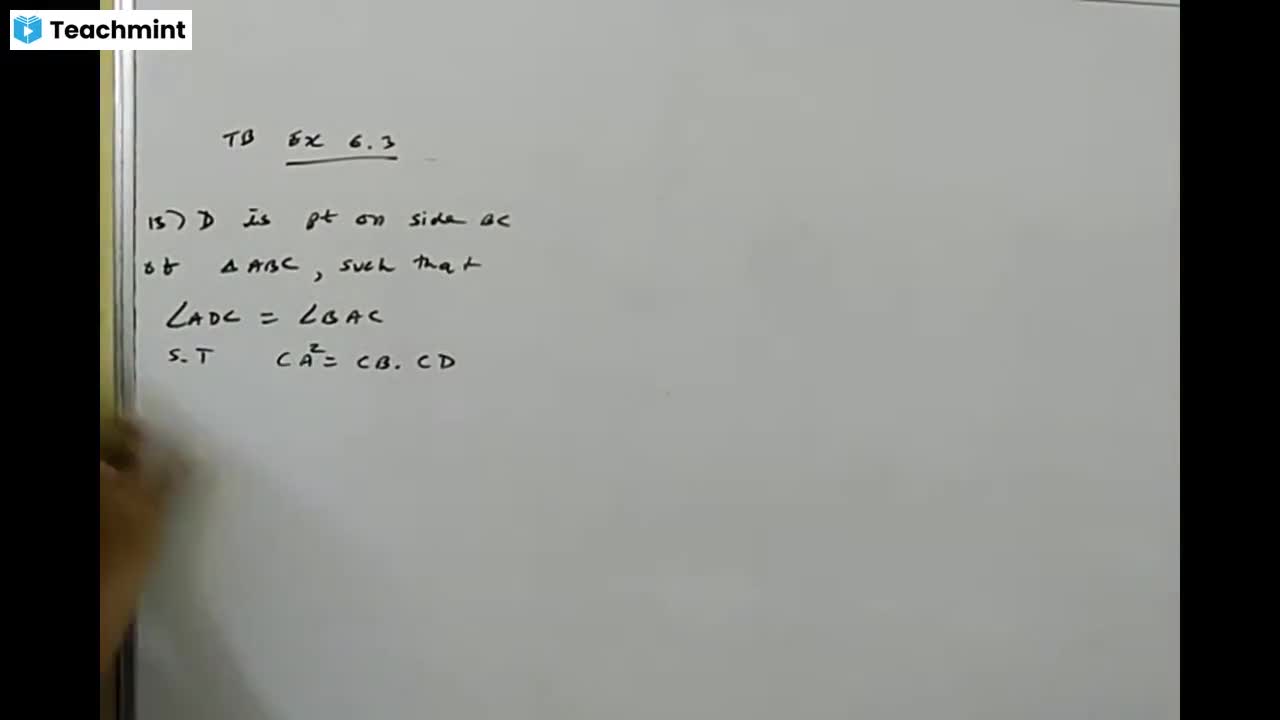 Teachmint
TB Ex 6.3
13) D is pt on side BC
of △ABC, such that
∠ADC = ∠BAC
S.T CA² = CB. CD